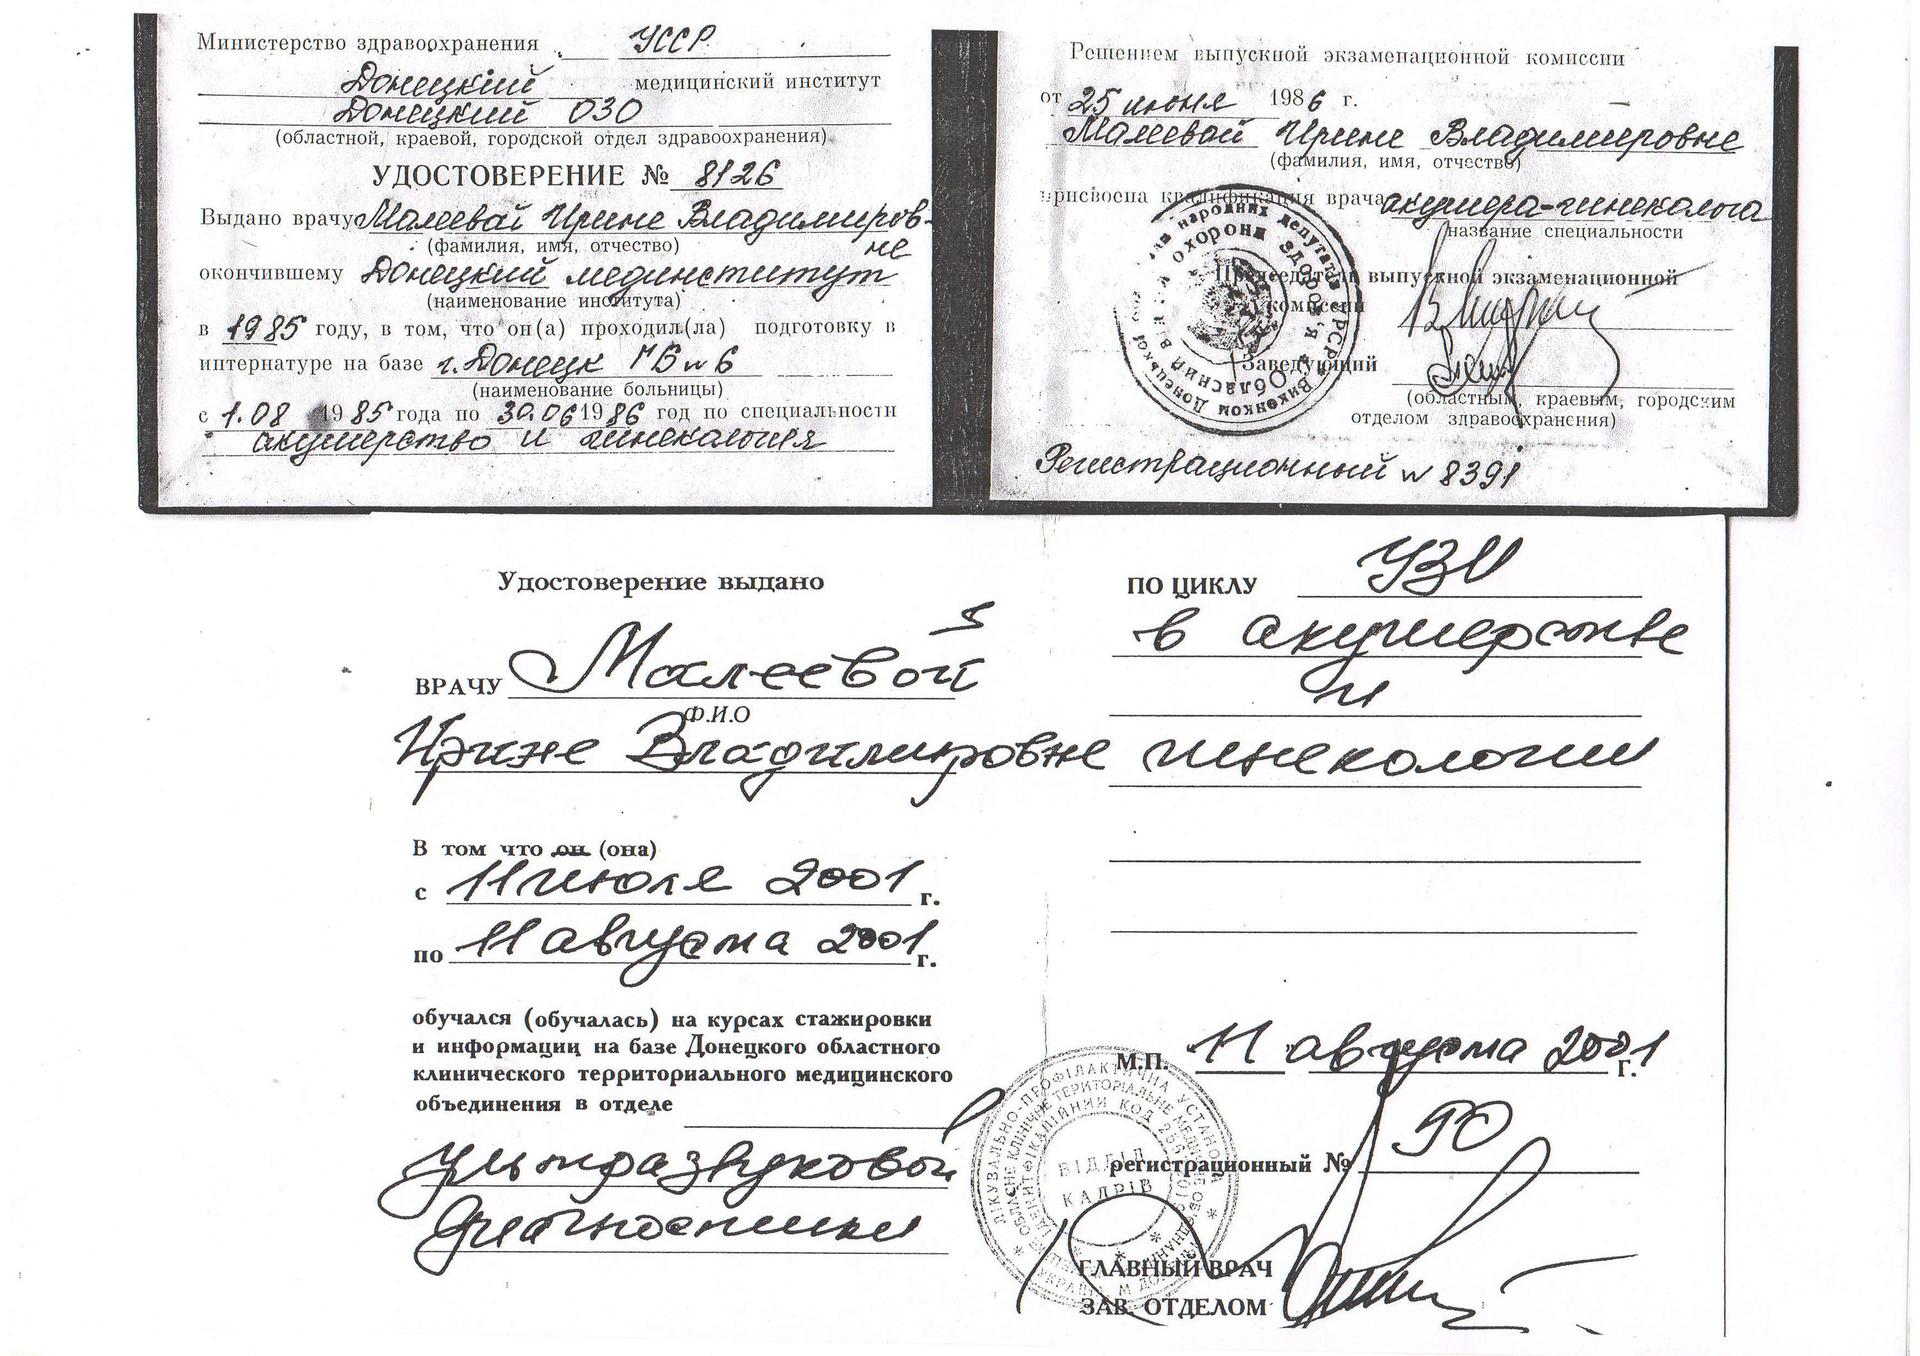 Министерство здравоохранения УССР
Донецкий медицинский институт
Донецкий ОЗО
(областной, краевой, городской отдел здравоохранения)
УДОСТОВЕРЕНИЕ № 8126
Выдано врачу Малеевой Ирине Владимиров-
не
(фамилия, имя, отчество)
окончившему Донецкий мединститут
(наименование института)
в 1985 году, в том, что он(а) проходил(ла) подготовку в
интернатуре на базе г. Донецк ГБ №6
(наименование больницы)
с 1.08 1985 года по 30.06 1986 год по специальности
акушерство и гинекология
Решением выпускной экзаменационной комиссии
от 25 июня 1986 г.
Малеевой Ирине Владимировне
(фамилия, имя, отчество)
присвоена квалификация врача акушера-гинеколога
название специальности
Председатель выпускной экзаменационной
комиссии
Заведующий
(областным, краевым, городским
отделом здравоохранения)
Регистрационный № 8391
Удостоверение выдано
ВРАЧУ Малеевой
Ф.И.О
Ирине Владимировне
В том что он (она)
с 11 июля 2001 г.
по 11 августа 2001 г.
обучался (обучалась) на курсах стажировки
и информации на базе Донецкого областного
клинического территориального медицинского
объединения в отделе
ультразвуковой
диагностики
ПО ЦИКЛУ УЗИ
в акушерстве
и
гинекологии
М.П. 11 августа 2001 г.
регистрационный № 90
ВІДДІЛ
КАДРІВ
ГЛАВНЫЙ ВРАЧ
ЗАВ. ОТДЕЛОМ